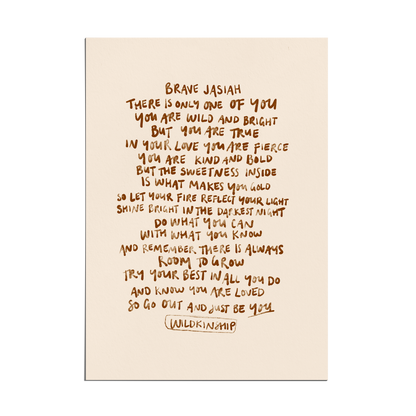 BRAVE JASIAH
THERE IS ONLY ONE OF YOU
YOU ARE WILD AND BRIGHT
BUT YOU ARE TRUE
IN YOUR LOVE YOU ARE FIERCE
YOU ARE KIND AND BOLD
BUT THE SWEETNESS INSIDE
IS WHAT MAKES YOU GOLD
SO LET YOUR FIRE REFLECT YOUR LIGHT
SHINE BRIGHT IN THE DARKEST NIGHT
DO WHAT YOU CAN
WITH WHAT YOU KNOW
AND REMEMBER THERE IS ALWAYS
ROOM TO GROW
TRY YOUR BEST IN ALL YOU DO
AND KNOW YOU ARE LOVED
SO GO OUT AND JUST BE YOU
WILDKINSHIP